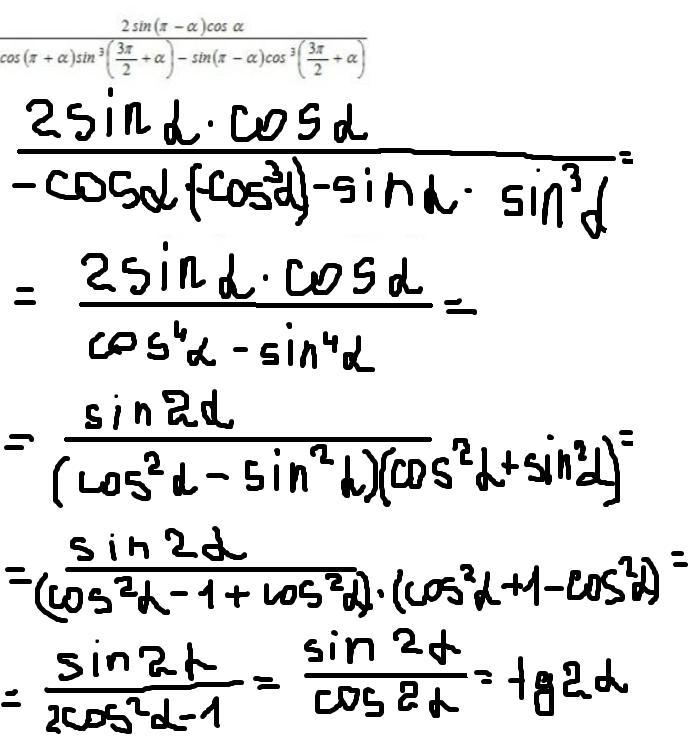 2 sin (π − α) cos α
cos (π + α) sin ³ (3π/2 + α) − sin(π − α) cos ³ (3π/2 + α)
2 sin α · cos α
−cos α (−cos³α) − sin α · sin³α =
= 2 sin α · cos α =
cos⁴α − sin⁴α
= sin 2α =
(cos²α − sin²α)(cos²α + sin²α)
= sin 2α =
(cos²α − 1 + cos²α) · (cos²α + 1 − cos²α)
= sin 2α = sin 2α = tg 2α
2cos²α − 1 cos 2α